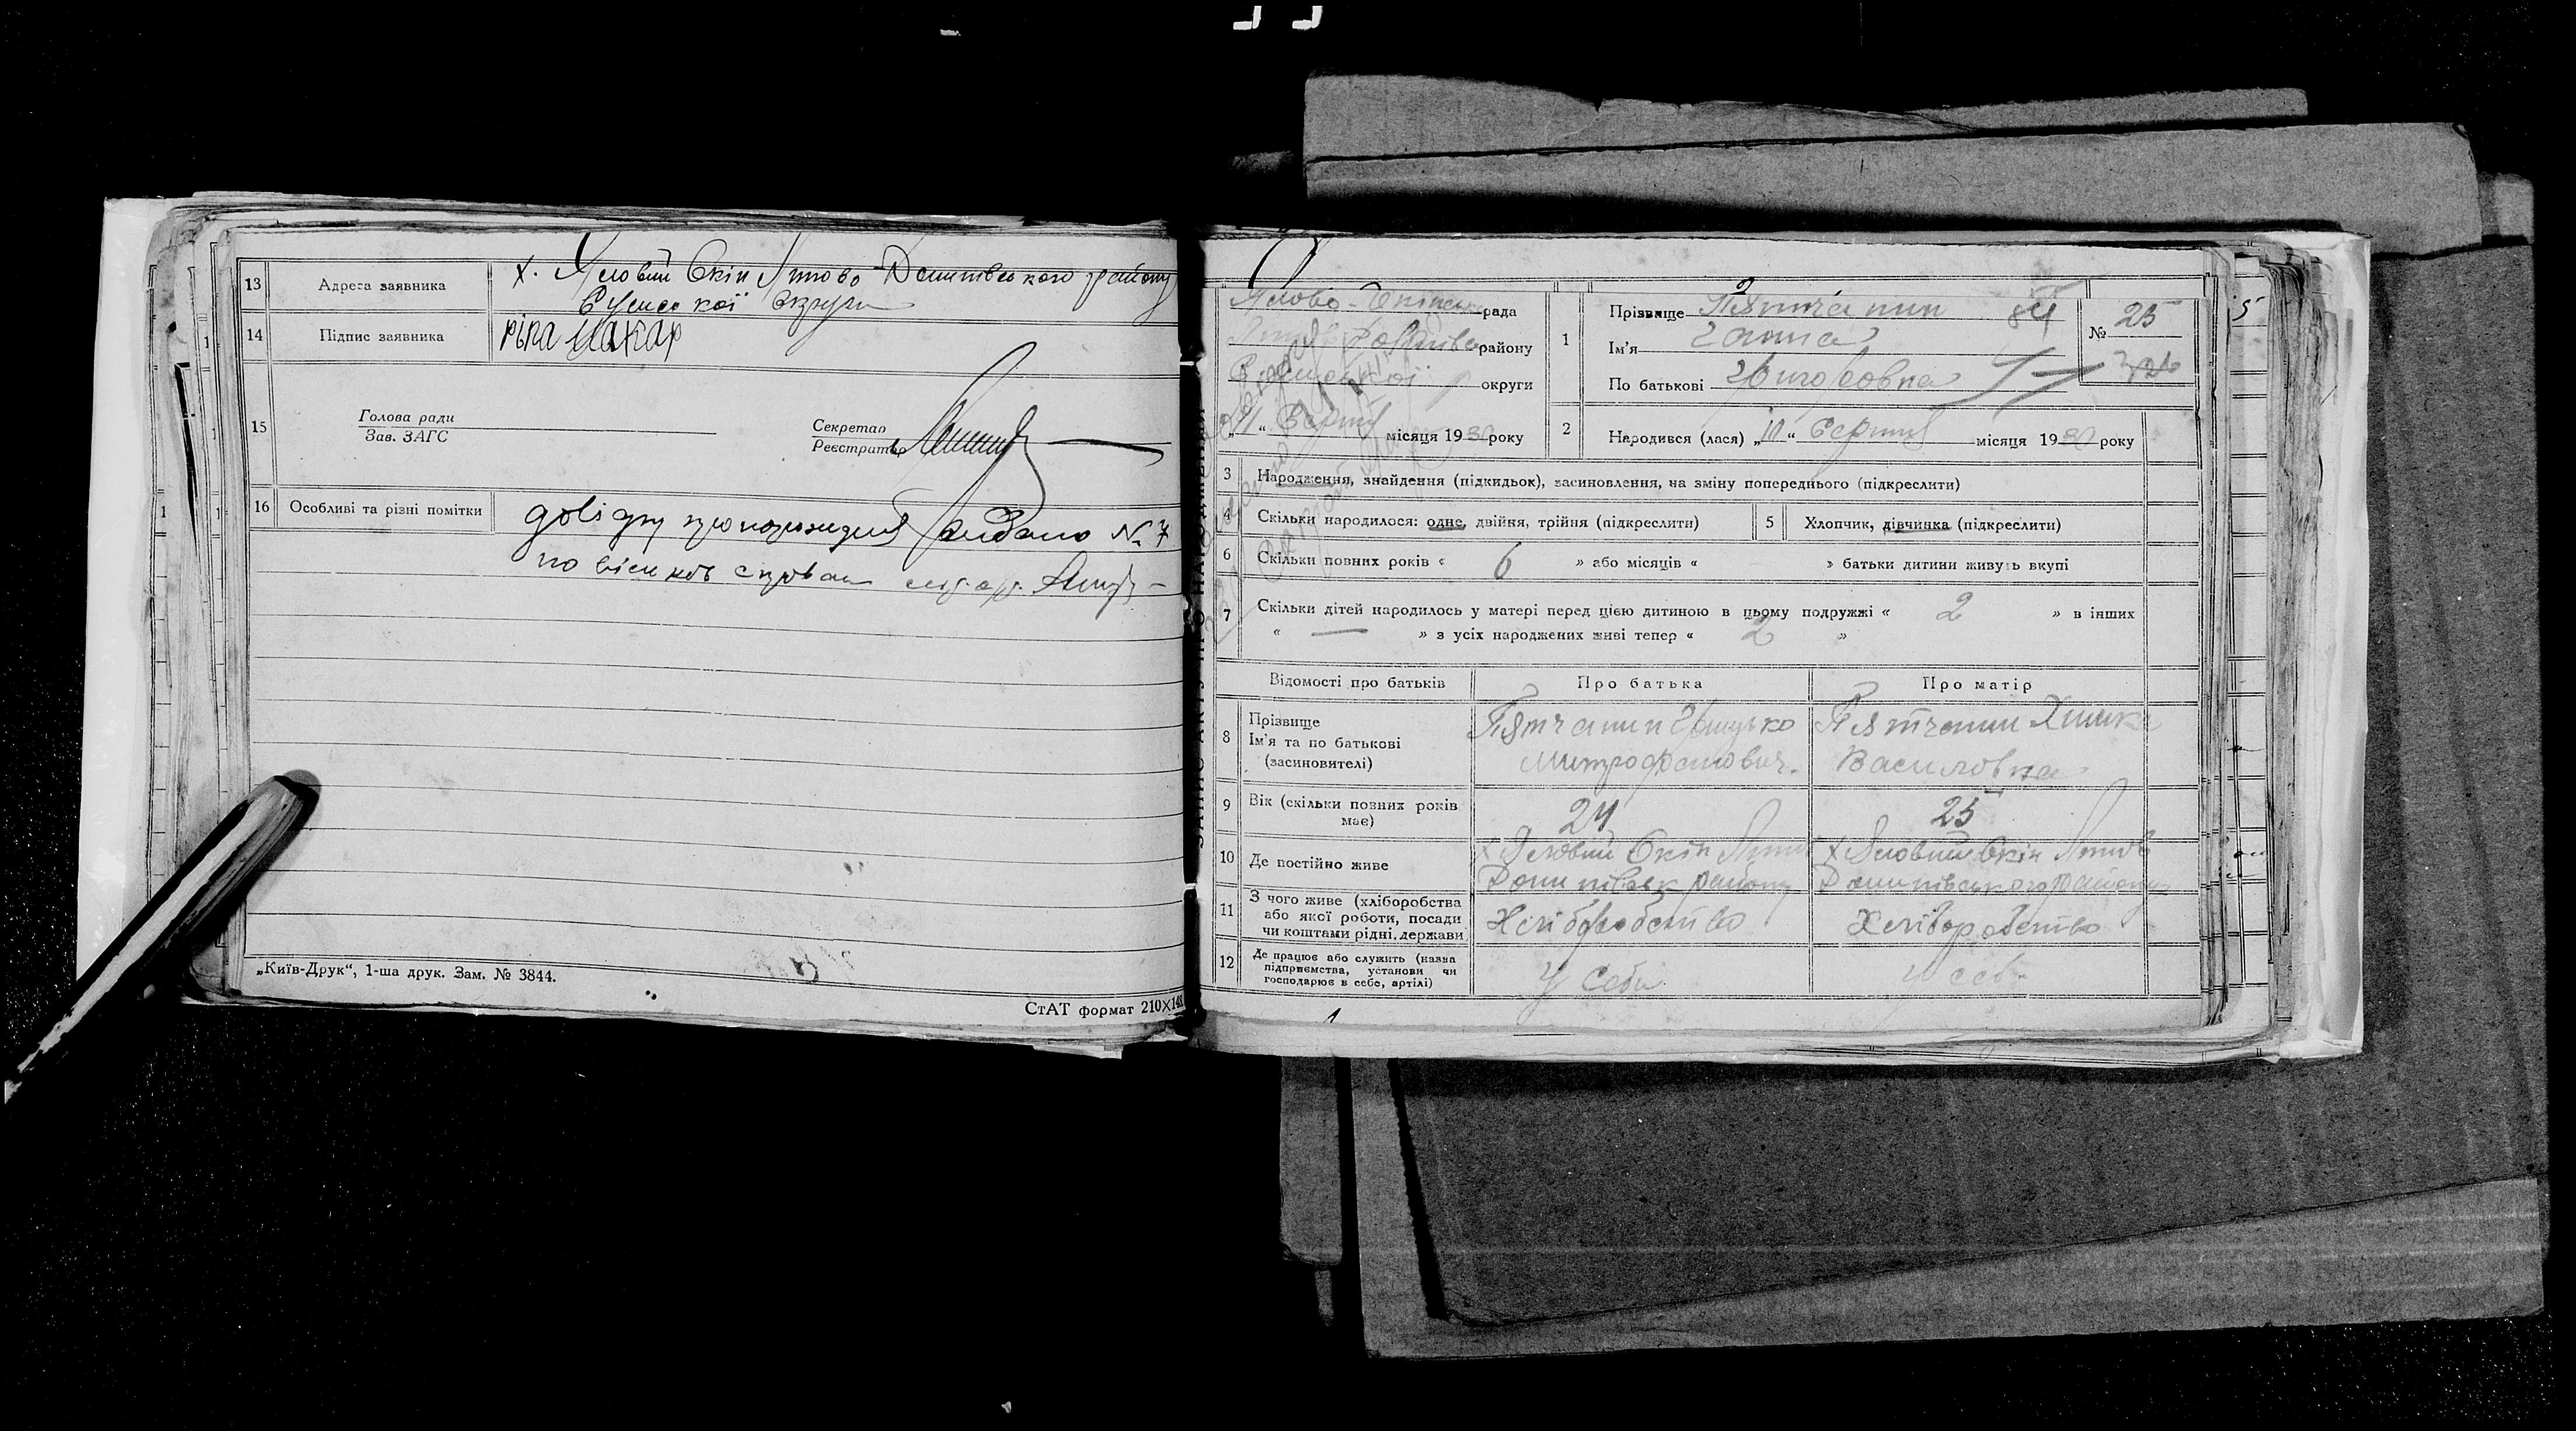 13 Адреса заявника х. Яловий Окіп Липово-Долинського району
Сумської округи
14 Підпис заявника ріпа макар
15 Голова ради
Зав. ЗАГС
Секретар
Реєстратор
16 Особливі та різні помітки довідку про народження видано № 7
„Київ-Друк“, 1-ша друк. Зам. № 3844.
СтАТ формат 210×148
Ялово-Окіпська рада
району
округи
„11“ Серпня місяця 1930 року
1 Прізвище Пятчанин 84
Ім'я Ганна
По батькові Григоровна
№ 25
2 Народився (лася) „10“ Серпня місяця 1930 року
3 Народження, знайдення (підкидьок), засиновлення, на зміну попереднього (підкреслити)
4 Скільки народилося: одне, двійня, трійня (підкреслити) 5 Хлопчик, дівчинка (підкреслити)
6 Скільки повних років « 6 » або місяців « » батьки дитини живуть вкупі
7 Скільки дітей народилось у матері перед цією дитиною в цьому подружжі « 2 » в інших
« — » з усіх народжених живі тепер « 2 »
Відомості про батьків Про батька Про матір
8 Прізвище
Ім'я та по батькові
(засиновителі)
Пятчанин Грицько
Митрофанович.
Пятчанин Химка
Василовна
9 Вік (скільки повних років має) 24 25
10 Де постійно живе
х Яловий Окіп Липов
Долинівськ району
х Яловий Окіп Липов
Долинівського району
11 З чого живе (хліборобства
або якої роботи, посади
чи коштами рідні, держави
Хліборобство Хліборобство
12 Де працює або служить (назва
підприємства, установи чи
господарює в себе, артілі)
У себе у себе